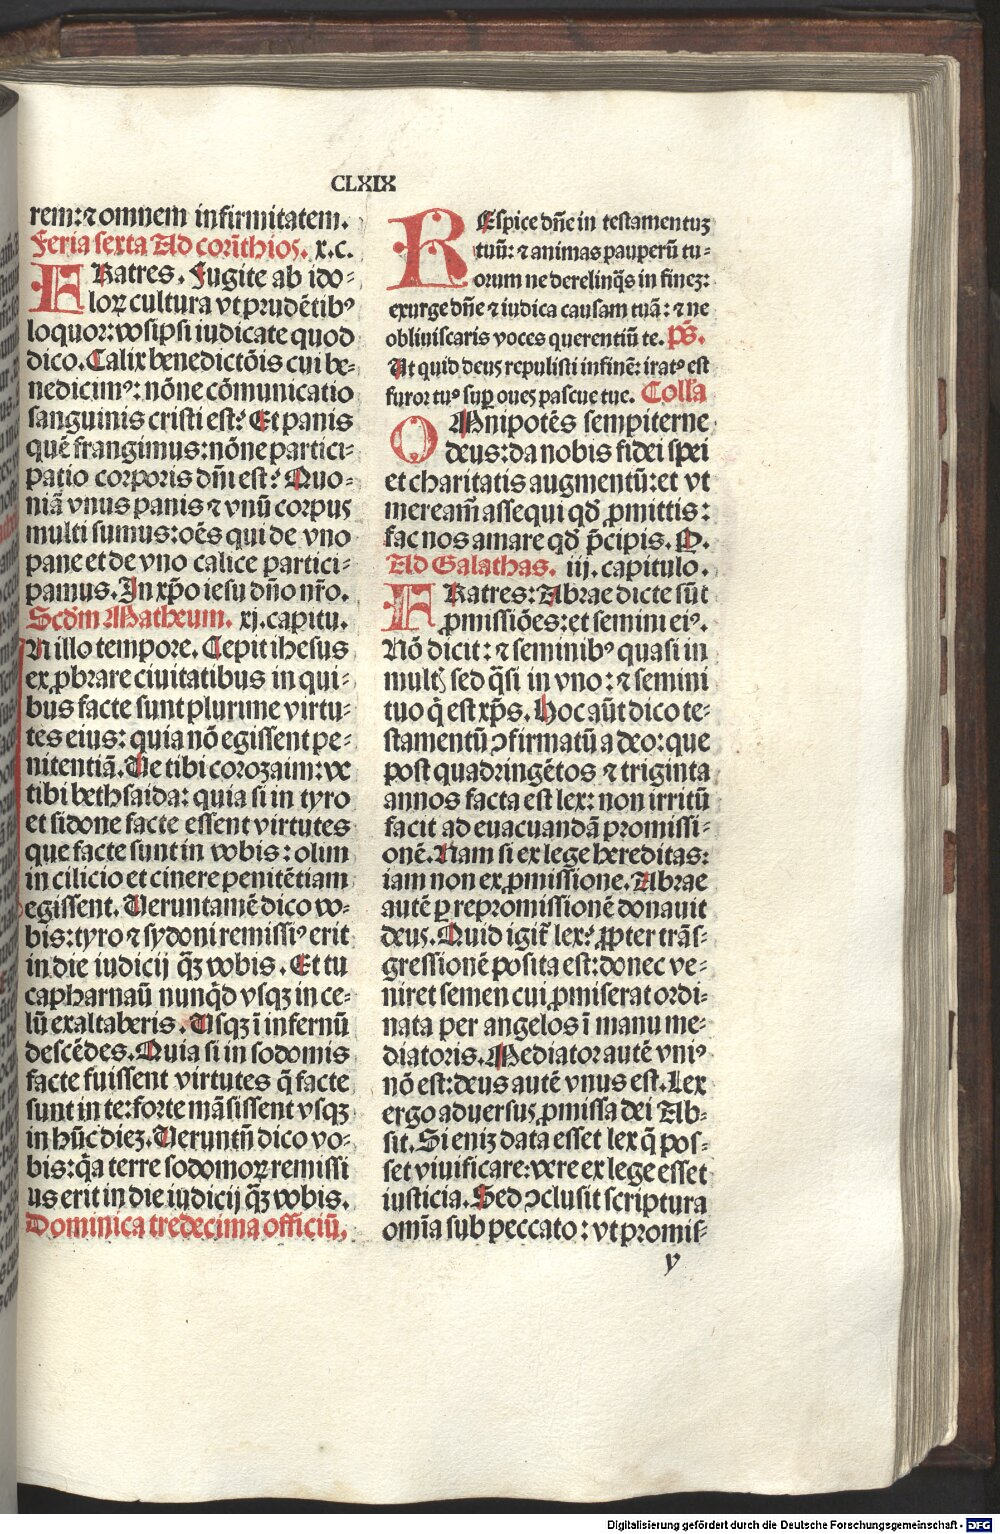 CLXIX
rem: ⁊ omnem infirmitatem.
Feria sexta Ad corīthios. x.c.
FRatres. Fugite ab ido⸗
loꝝ cultura vt prudētibꝰ
loquor: vos ipsi iudicate quod
dico. Calix benedictōis cui be⸗
nedicimꝰ: nōne cōmunicatio
sanguinis cristi est? Et panis
quē frangimus: nōne partici⸗
patio corporis dn̄i est? Quo⸗
niā vnus panis ⁊ vnū corpus
multi sumus: oēs qui de vno
pane et de vno calice partici⸗
pamus. In xp̄o iesu dn̄o nr̄o.
Scd̄m Matheum. xj. capitu.
IN illo tempore. Cepit ihesus
exꝓbrare ciuitatibus in qui⸗
bus facte sunt plurime virtu⸗
tes eius: quia nō egissent pe⸗
nitentiā. Ue tibi corozaim: ve
tibi bethsaida: quia si in tyro
et sidone facte essent virtutes
que facte sunt in vobis: olim
in cilicio et cinere penitētiam
egissent. Ueruntamē dico vo⸗
bis: tyro ⁊ sydoni remissiꝰ erit
in die iudicij q̄ꝫ vobis. Et tu
capharnaū nunqd̄ vsqꝫ in ce⸗
lū exaltaberis. Usqꝫ ī infernū
descēdes. Quia si in sodomis
facte fuissent virtutes q̄ facte
sunt in te: forte māsissent vsqꝫ
in hūc dieꝫ. Ueruntn̄ dico vo⸗
bis: q̄a terre sodomoꝝ remissi
us erit in die iudicij q̄ꝫ vobis.
Dominica tredecima officiū.
REspice dn̄e in testamentuꝫ
tuū: ⁊ animas pauperū tu⸗
orum ne derelinq̄s in fineꝫ:
exurge dn̄e ⁊ iudica causam tuā: ⁊ ne
obliuiscaris voces querentiū te. pS̄.
Ut quid deus repulisti in finē: iratꝰ est
furor tuꝰ suꝑ oues pascue tue. Coll'a
OMnipotēs sempiterne
deus: da nobis fidei spei
et charitatis augmentū: et vt
meream̄ assequi qd̄ ꝓmittis:
fac nos amare qd̄ p̄cipis. P.
Ad Galathas. iij. capitulo.
FRatres: Abrae dicte sūt
ꝓmissiōes: et semini eiꝰ.
Nō dicit: ⁊ seminibꝰ quasi in
mult' sed q̄si in vno: ⁊ semini
tuo q̄ est xp̄s. Hoc aūt dico te⸗
stamentū ↄfirmatū a deo: que
post quadringētos ⁊ triginta
annos facta est lex: non irritū
facit ad euacuandā promissi⸗
onē. Nam si ex lege hereditas:
iam non ex ꝓmissione. Abrae
autē ꝑ repromissionē donauit
deus. Quid igit̄ lex? ꝓpter trās⸗
gressionē posita est: donec ve⸗
niret semen cui ꝓmiserat ordi⸗
nata per angelos ī manu me⸗
diatoris. Mediator autē vniꝰ
nō est: deus autē vnus est. Lex
ergo aduersus ꝓmissa dei Ab⸗
sit. Si eniꝫ data esset lex q̄ pos⸗
set viuificare: vere ex lege esset
iusticia. Sed ↄclusit scriptura
om̄ia sub peccato: vt promis⸗
y
Digitalisierung gefördert durch die Deutsche Forschungsgemeinschaft - DFG